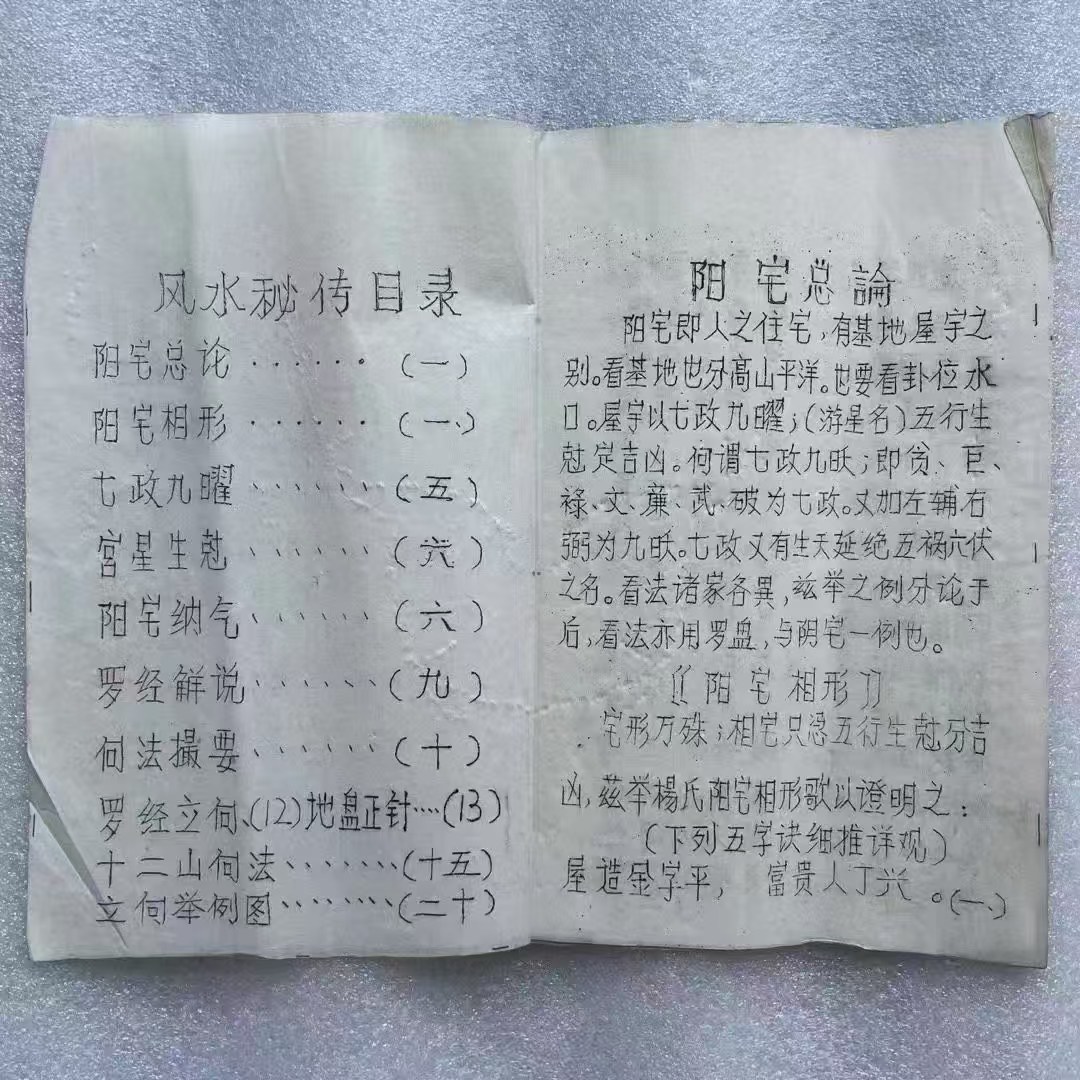 风水秘传目录
阳宅总论······(一)
阳宅相形······(一、)
七政九曜、、、、、、(五)
宫星生尅、、、、、、(六)
阳宅纳气、、、、、、(六)
罗经解说、、、、、、(九)
向法撮要、、、、、、(十)
罗经立向、(12)地盘正针···(13)
十二山向法、、、、、、(十五)
立向举例图········(二十)
阳宅总論
阳宅即人之住宅,有基地屋宇之
别。看基地也分高山平洋。也要看卦位水
口。屋宇以七政九曜;(游星名)五行生
尅定吉凶。何谓七政九昳;即贪、巨、
禄、文、廉、武、破为七政。又加左辅右
弼为九昳。七政又有生天延绝五祸六伏
之名。看法诸家各異,兹举之例分论于
后,看法亦用罗盘,与阴宅一例也。
〖阳宅相形〗
宅形万殊;相宅只忌五行生尅分吉
凶,兹举楊氏阳宅相形歌以證明之:
(下列五字诀细推详观)
屋造金字平, 富贵人丁兴。(一、)